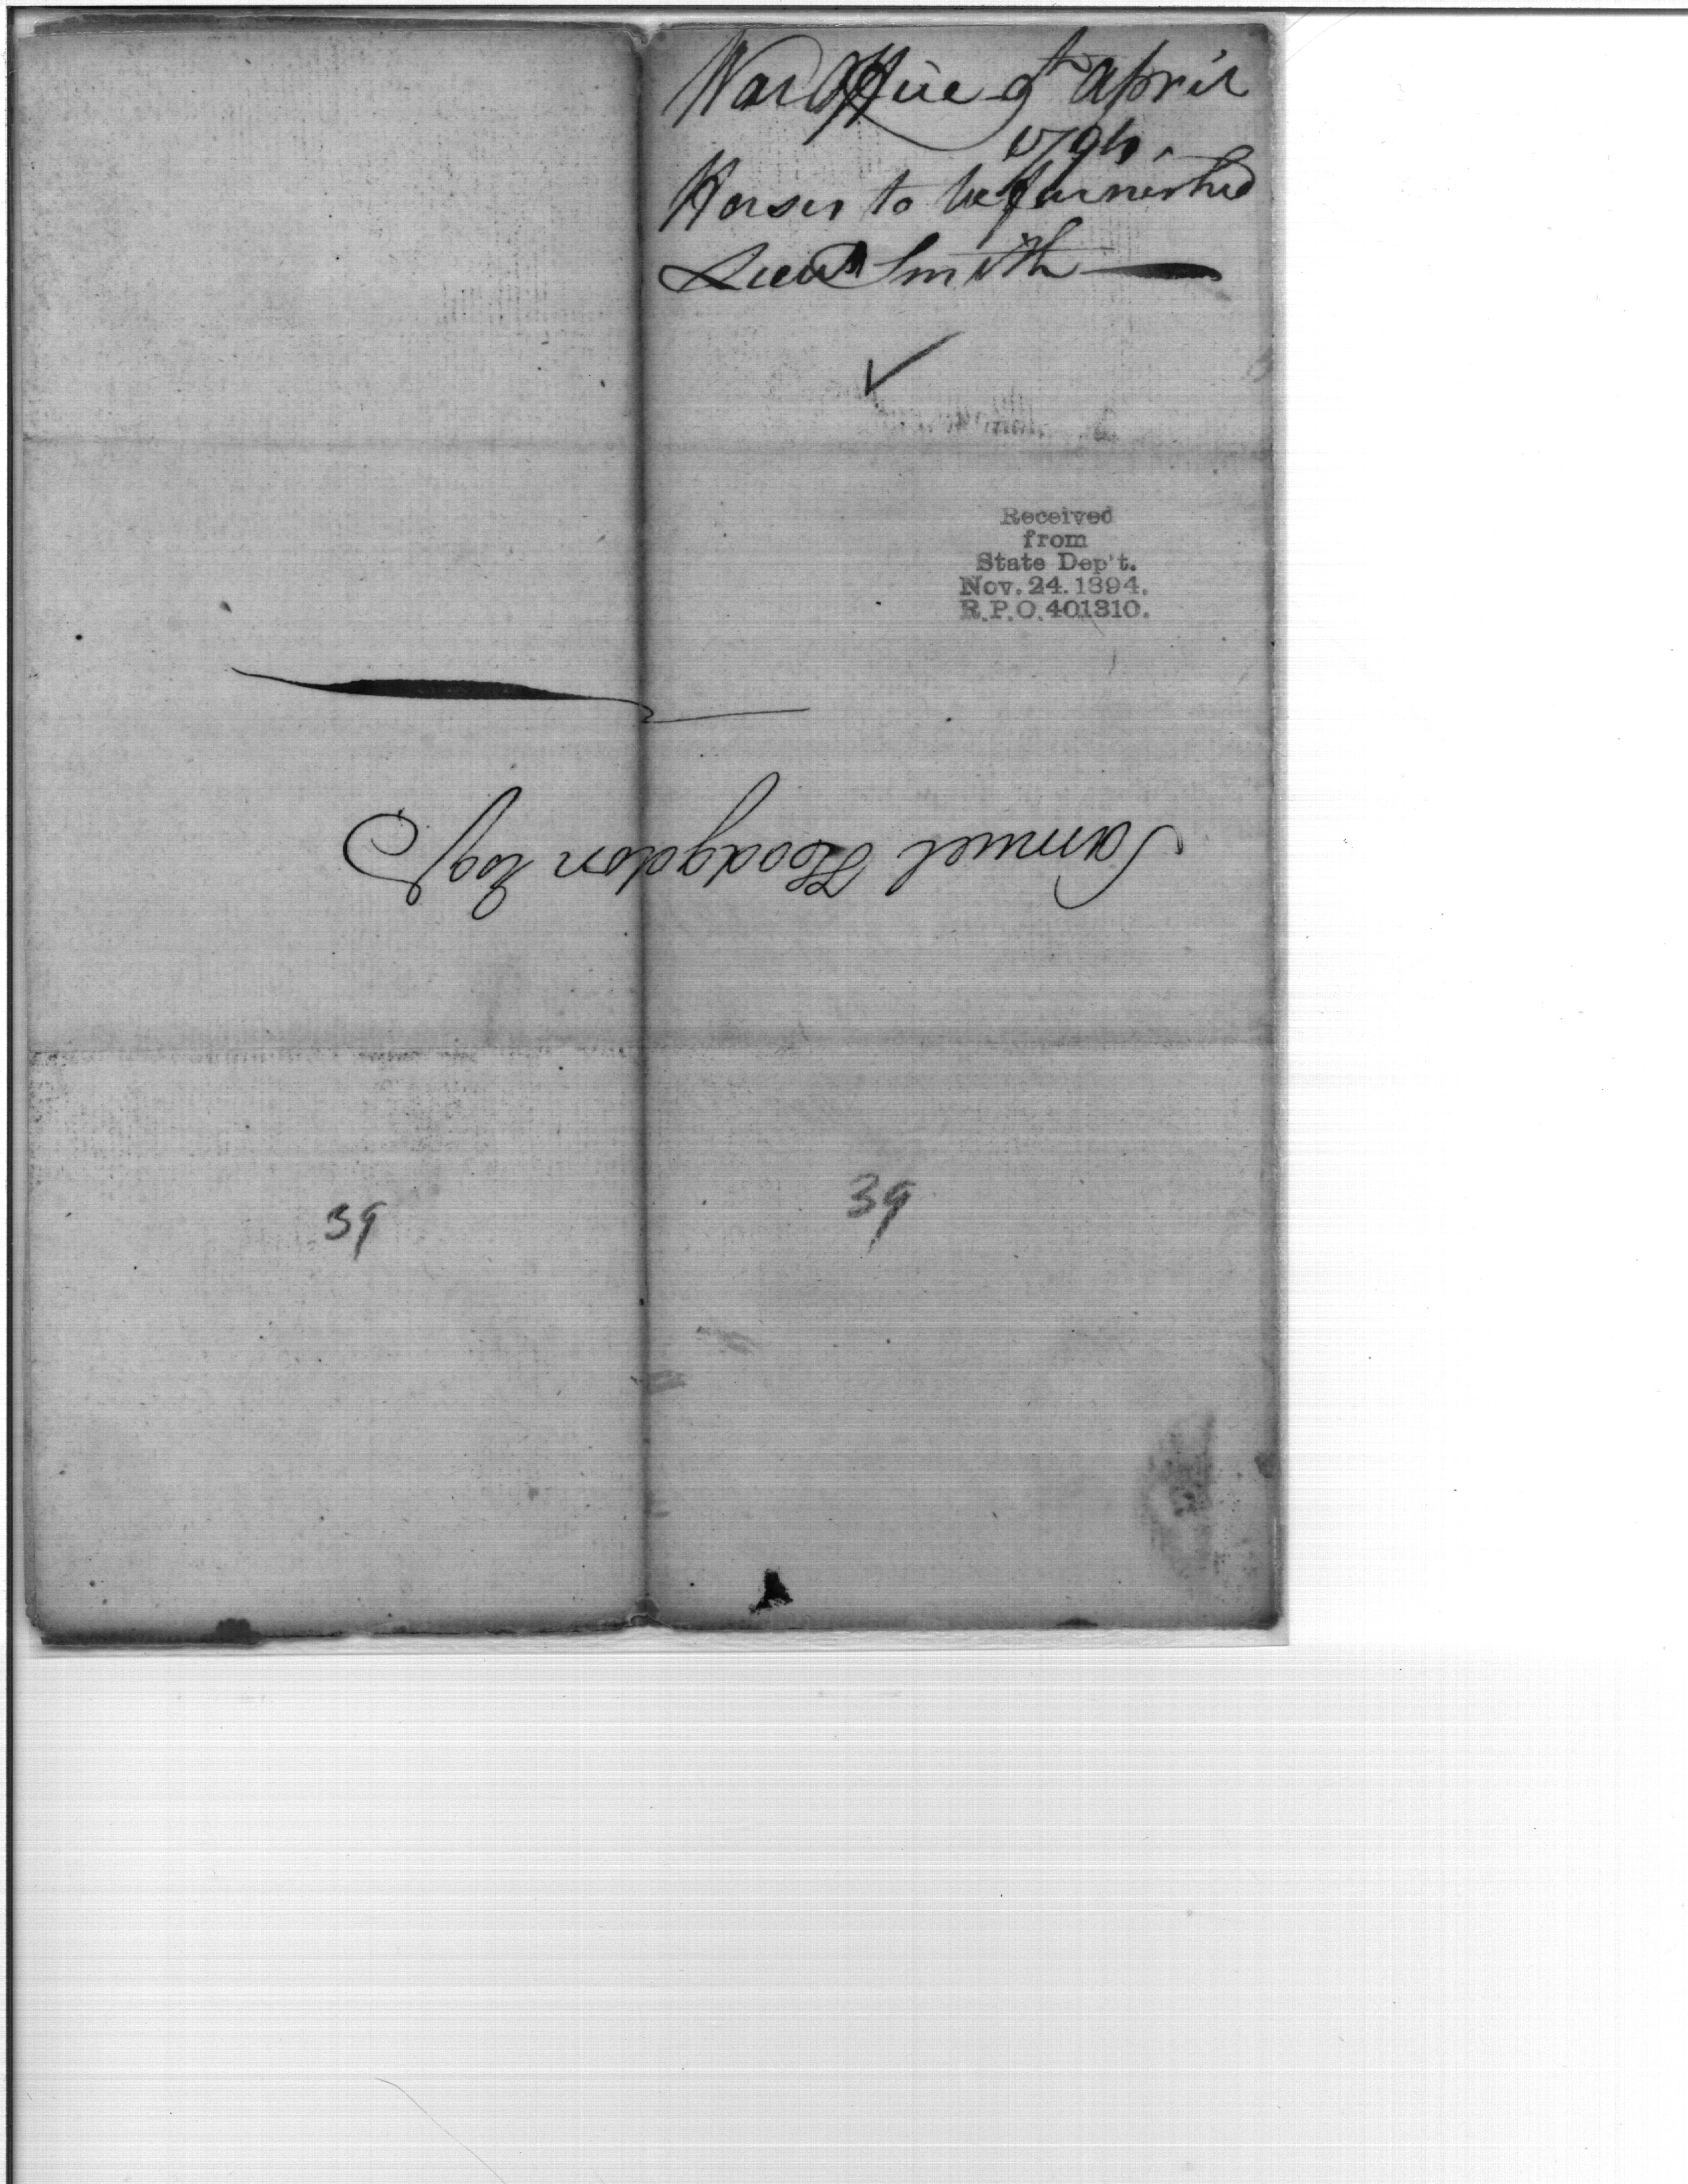 War Office 9th April
1794.
Horses to be furnished
Lieut Smith
Received
from
State Dep't.
Nov. 24. 1894.
R.P.O. 401310.
Samuel Hodgdon Esqr
39
39